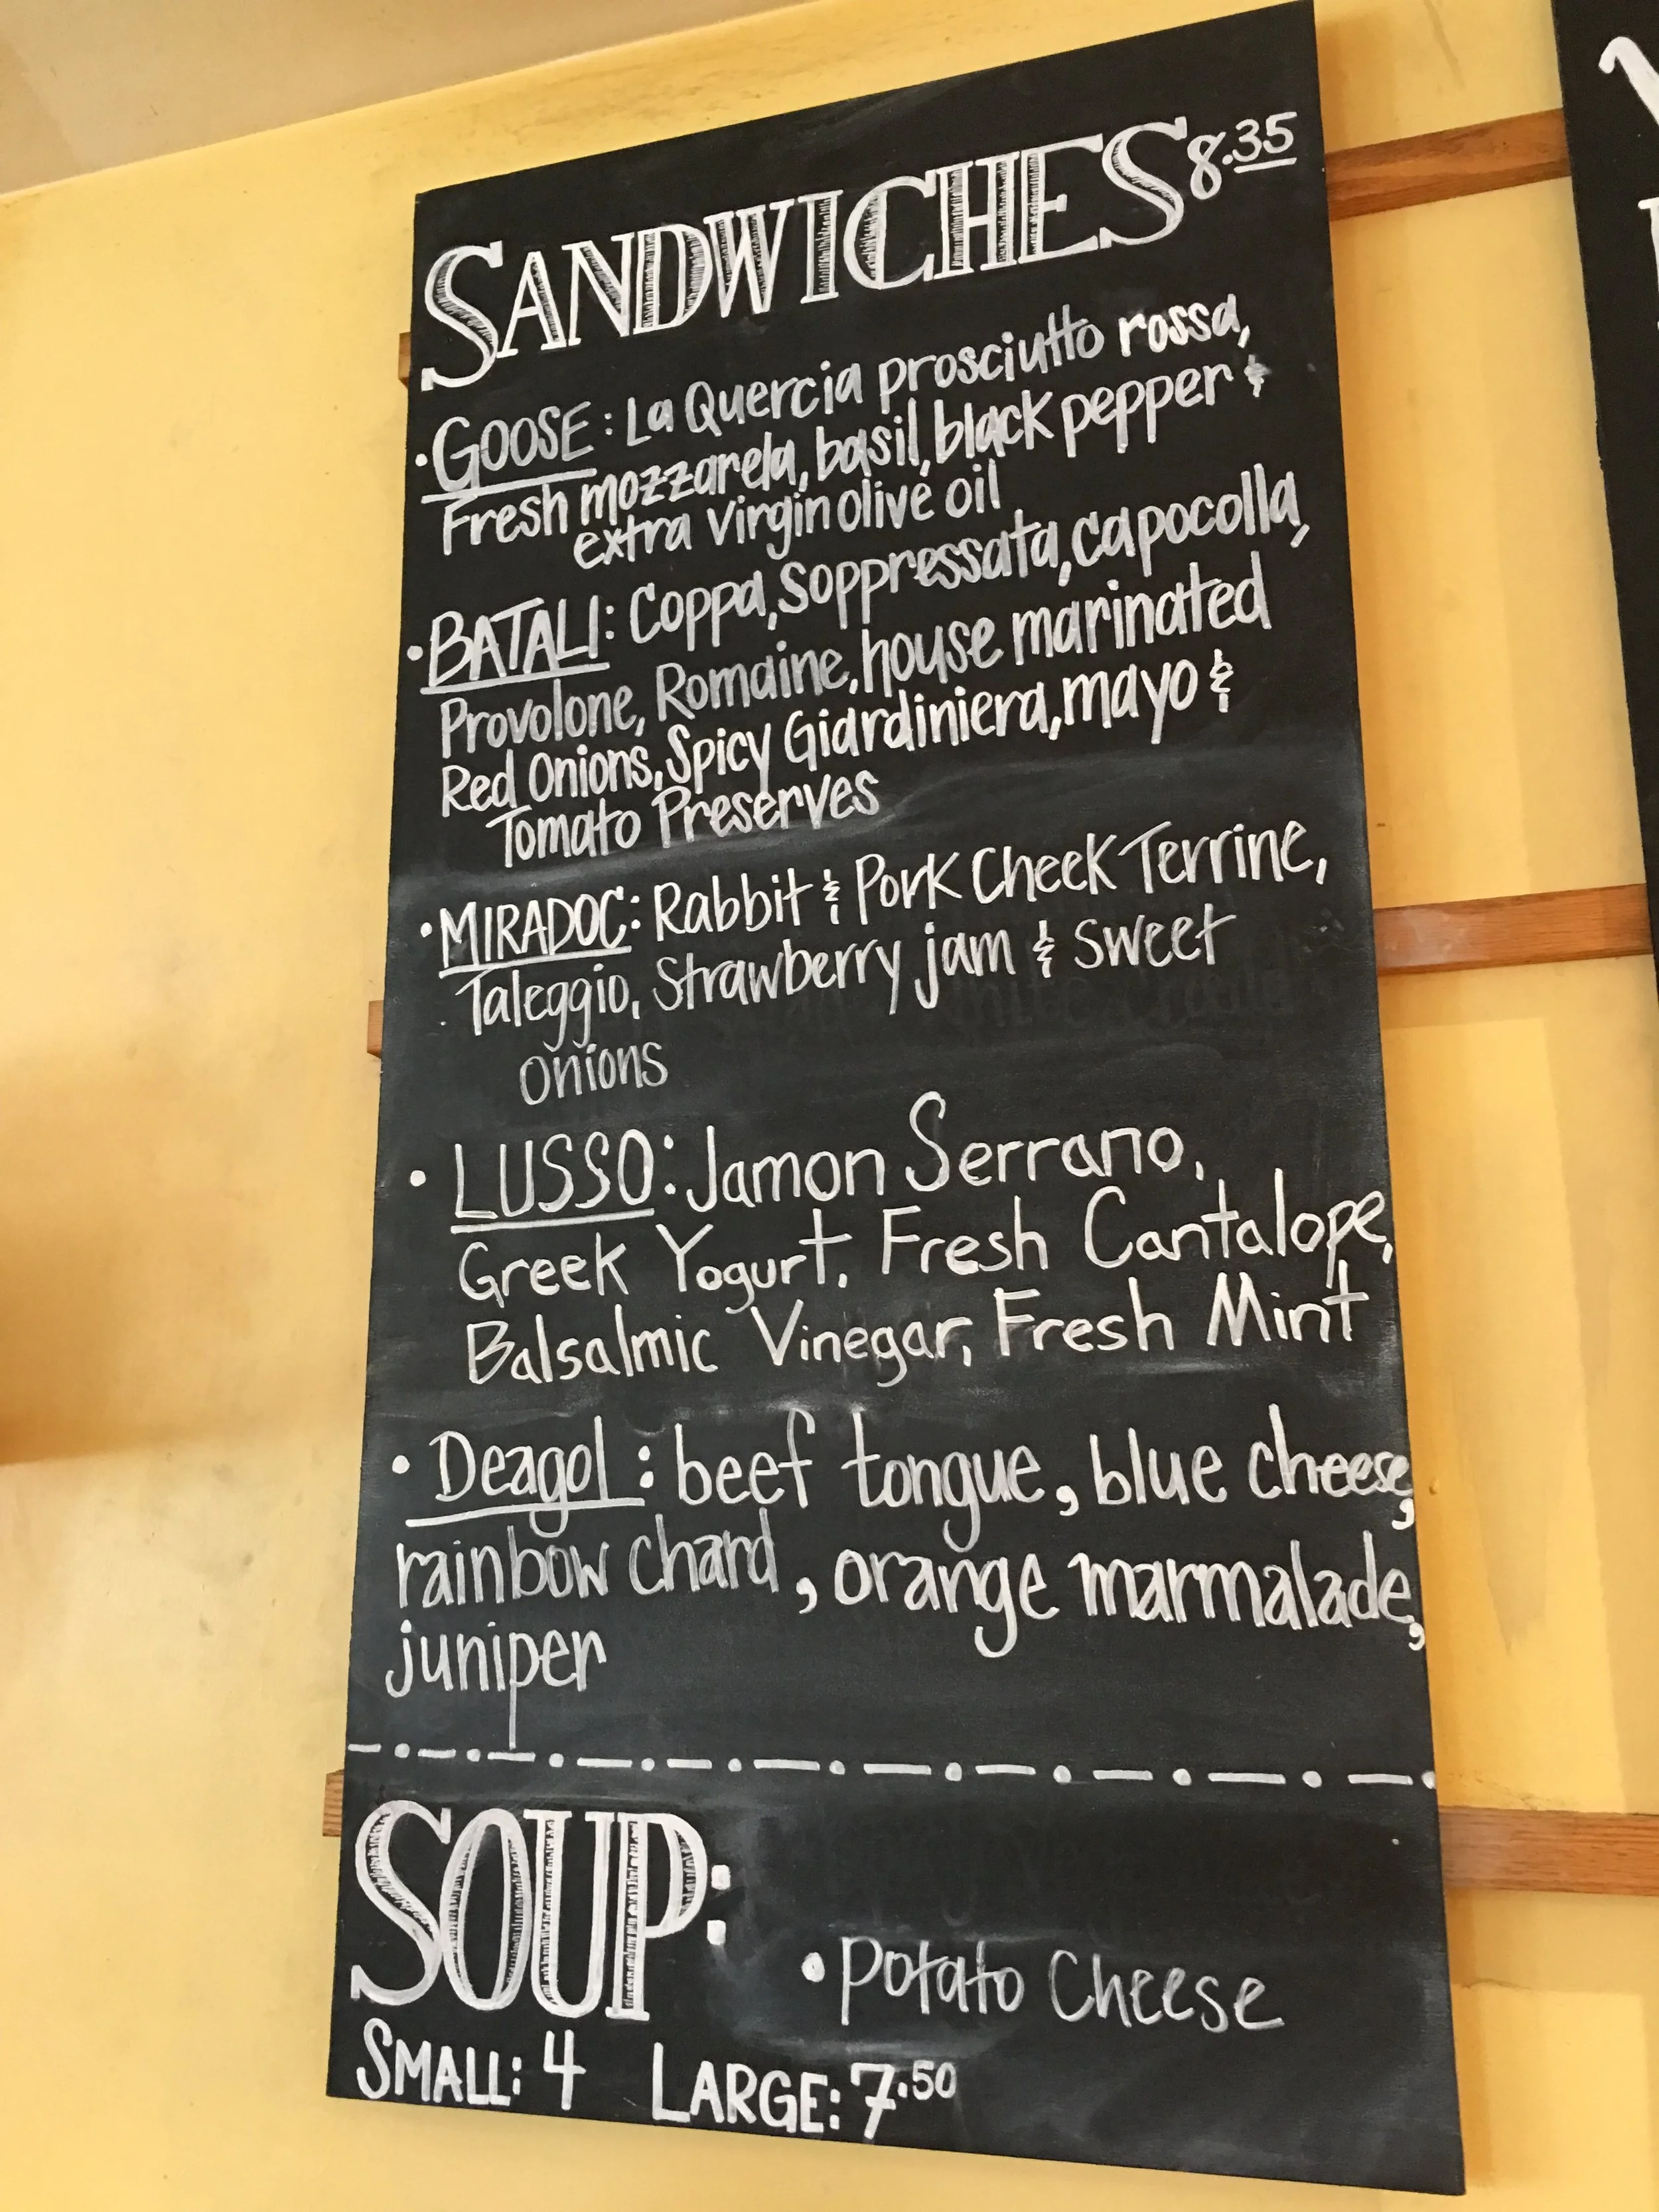 SANDWICHES 8.35
• GOOSE: La Quercia prosciutto rossa,
Fresh mozzarela, basil, black pepper &
extra Virgin olive oil
• BATALI: Coppa, Soppressata, capocolla,
Provolone, Romaine, house marinated
Red Onions, Spicy Giardiniera, mayo &
Tomato Preserves
• MIRADOC: Rabbit & Pork Cheek Terrine,
Taleggio, Strawberry jam & sweet
onions
• LUSSO: Jamon Serrano,
Greek Yogurt, Fresh Cantalope,
Balsalmic Vinegar, Fresh Mint
• Deagol: beef tongue, blue cheese,
rainbow chard, orange marmalade,
juniper
SOUP:
• Potato Cheese
SMALL: 4 LARGE: 7.50